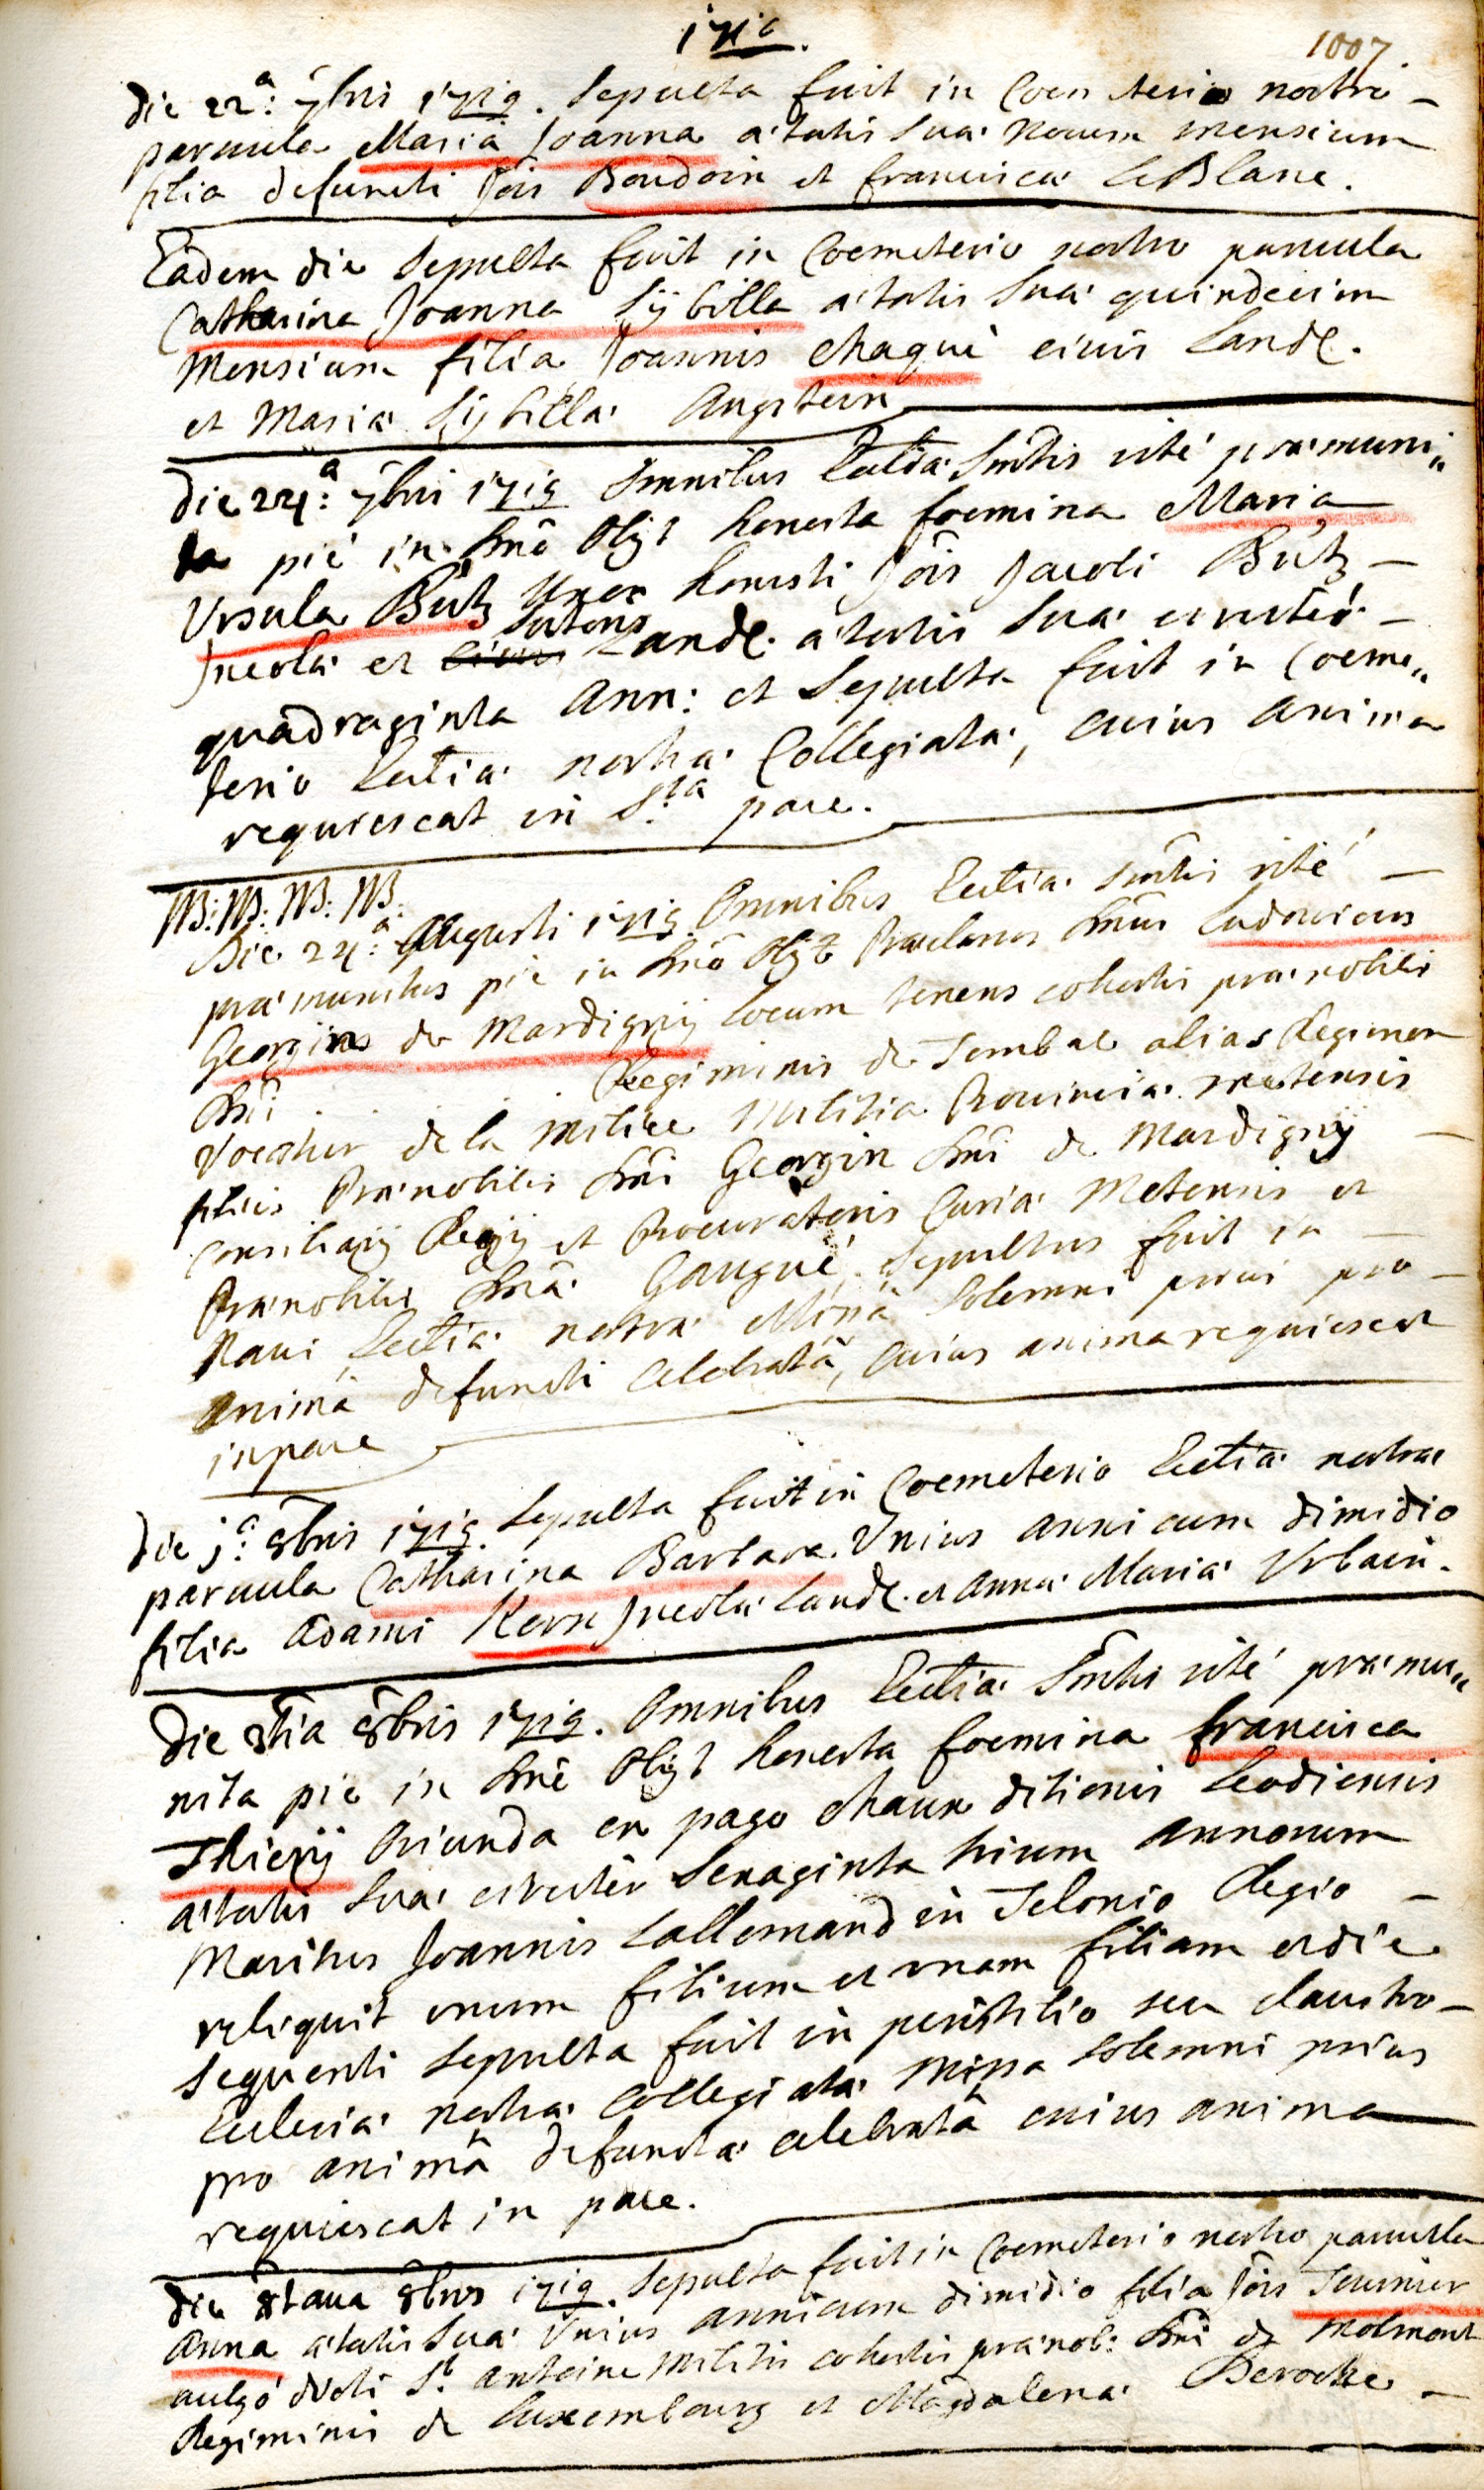 1719.
1007
Die 22ª: 7bris 1719. Sepulta fuit in Coemeterio nostro –
parvula Maria Joanna ætatis suæ novem mensium
filia defuncti Jõis Baudoin et franciscæ LeBlanc.
Eâdem die Sepulta fuit in Coemeterio nostro parvula
Catharina Joanna Sÿbilla ætatis suæ quindecim
Mensium filia Joannis Chaquè civis Land.
et Mariæ Sÿbillæ Angstein
Die 24:ª 7bris 1719 Omnibus Ecclīæ Smtis ritè præmuni„
ta piè in Dnō Obijt honesta foemina Maria
Ursula Bütz Uxor honesti Jõis Jacobi Bütz –
Incolæ et civis Sutoris Land. ætatis suæ circiter –
quadraginta Ann: et Sepulta fuit in Coeme„
terio Ecclīæ nostræ Collegiatæ, cuius anima
requiescat in S:ta pace.
NB: NB: NB: NB:
Die 24:ª Augusti 1719. Omnibus Ecclīæ Smtis ritè –
præmunitus piè in Dnō Obijt Præclarus Dnus Ludovicus
Georgin de Mardignÿ Locum tenens cohortis prænobilis
Dni . . . Regiminis de Tombac alias Regimen
vocatur de la milice Militiæ Provinciæ metensis
filius Prænobilis Dni Georgin Dni de Mardignÿ –
Consiliarÿ Regÿ et Procuratoris Curiæ Metensis et
Prænobilis Dnæ Gauguè, Sepultus fuit in –
Navi Ecclīæ nostræ Missâ Solemni prius pro –
Animâ defuncti Celebratâ, cuius anima requiescat
in pace
Die j:ª 8bris 1719. Sepulta fuit in Coemeterio Ecclīæ nostræ
parvula Catharina Barbara Unius anni cum dimidio
filia Adami Kern Incolæ Land. et Annæ Mariæ Urbain.
Die 8tīa 8bris 1719. Omnibus Ecclīæ Smtis ritè præmu„
nita piè in Dnō Obijt honesta foemina francisca
Thierÿ Oriunda ex pago Chaux ditionis Leodiensis
ætatis suæ circiter Sexaginta trium annorum
Maritus Joannis Lallemand in Telonio Regio –
reliquit unum filium et unam filiam et die
sequenti sepulta fuit in peristilio seu claustro –
Ecclesiæ nostræ Collegiatæ Missa Solemni prius
pro animâ defunctæ celebratâ cuius anima
requiescat in pace.
Die 8tava 8bris 1719. Sepulta fuit in Coemeterio nostro parvula
Anna ætatis suæ Unius anni cum dimidio filia Jõis Tournier
vulgò dicti St. Antoine Militis cohortis prænob: Dni de Molmont
Regiminis de Luxembourg et Magdalenæ Deroche –